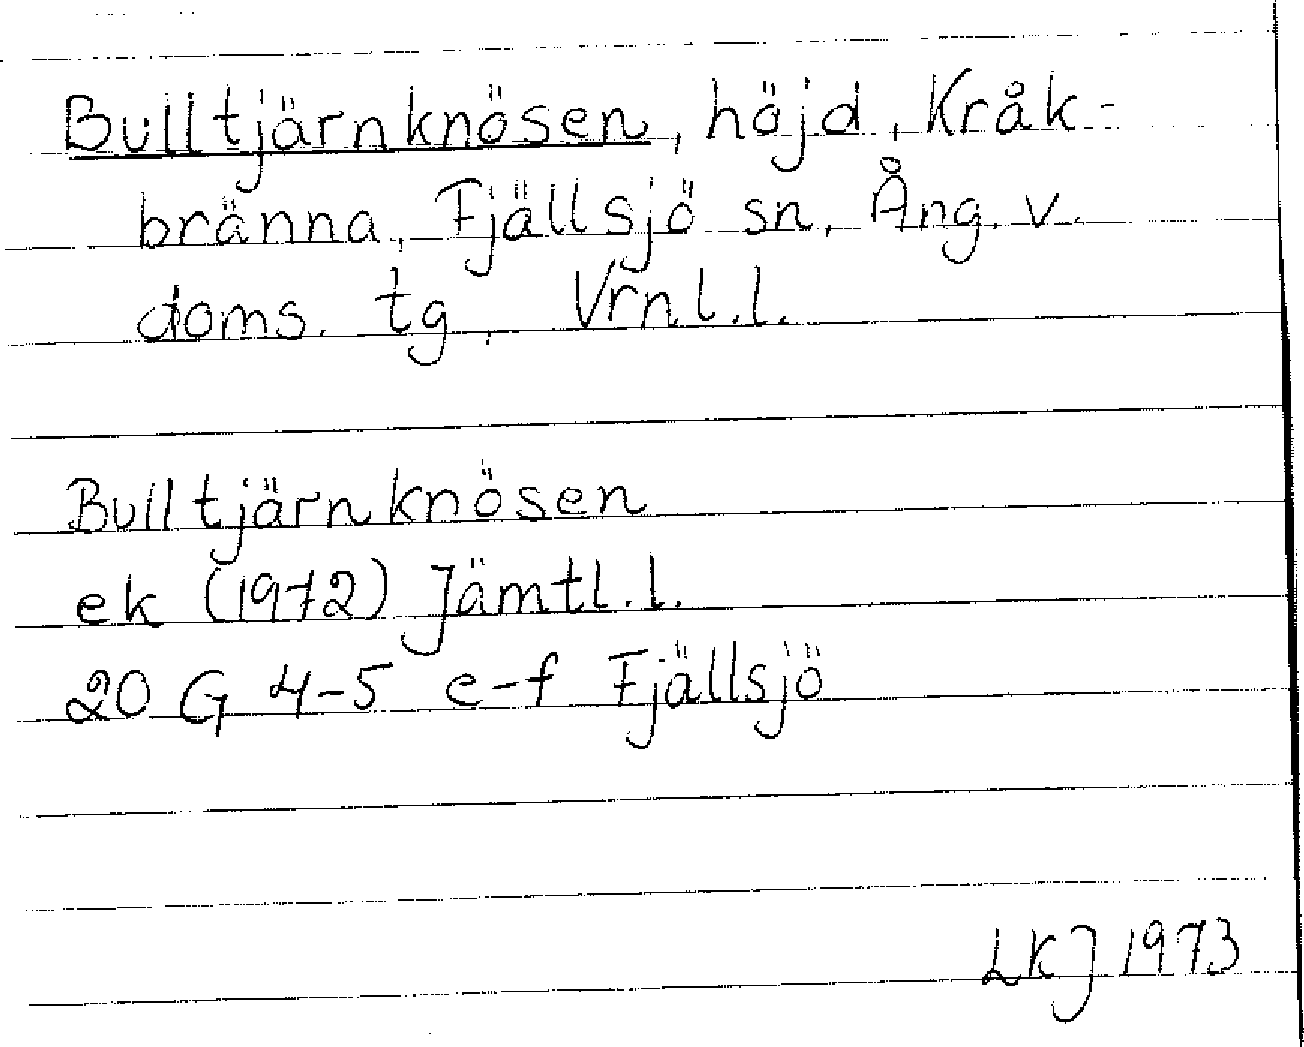 Bulltjärnknösen, höjd, Kråk-
bränna, Fjällsjö sn, Ång. v.
doms. tg, Vrnl.l.
Bulltjärnknösen
ek (1972) Jämtl.l.
20 G 4-5 e-f Fjällsjö
LKJ 1973